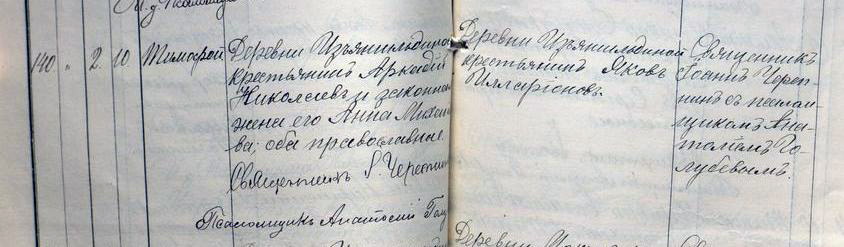 И. д. Псаломщика
140. " 2. 10. Тимофей
Деревни Изъянильдиной
крестьянинъ Аркадій
Николаевъ и законная
жена его Анна Михеи-
ва; оба православные.
Священникъ І. Черепни
Псаломщикъ Анатолій Голу
Деревни Изъянильдиной
крестьянинъ Яковъ
Илларіоновъ.
Священникъ
Іоаннъ Череп-
нинъ съ псалом-
щикомъ Ана-
толіемъ Го-
лубевымъ.
Деревни